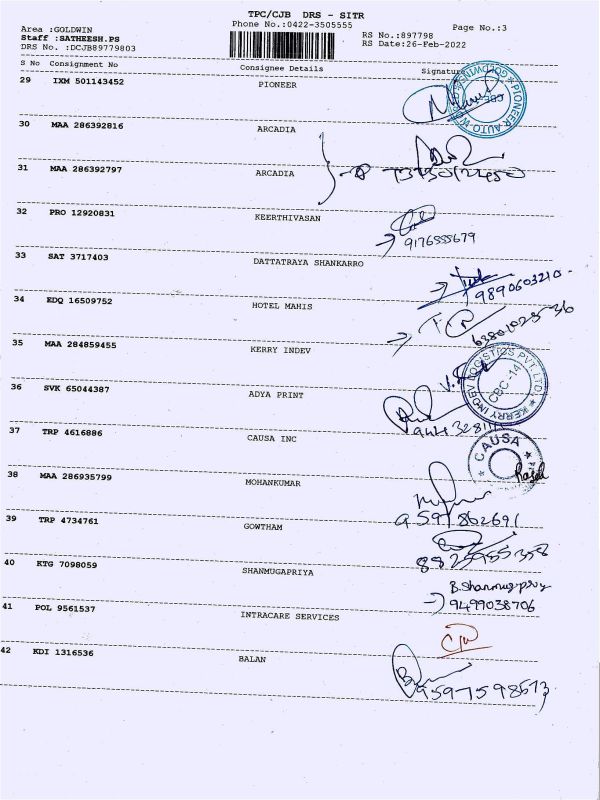 TPC/CJB DRS - SITR
Area :GOLDWIN Phone No.:0422-3505555 Page No.:3
Staff :SATHEESH.PS RS No.:897798
DRS No. :DCJB89779803 RS Date:26-Feb-2022
S No Consignment No Consignee Details Signatur
29 IXM 501143452 PIONEER
PIONEER AUTO WORLD * GOLDWINS * CBE-14
30 MAA 286392816 ARCADIA
31 MAA 286392797 ARCADIA
32 PRO 12920831 KEERTHIVASAN
9176555679
33 SAT 3717403 DATTATRAYA SHANKARRO
9890603210
34 EDQ 16509752 HOTEL MAHIS
35 MAA 284859455 KERRY INDEV
KERRY INDEV LOGISTICS PVT. LTD. * CBC-14
36 SVK 65044387 ADYA PRINT
37 TRP 4616886 CAUSA INC
* CAUSA
38 MAA 286935799 MOHANKUMAR
9597862691
39 TRP 4734761 GOWTHAM
40 KTG 7098059 SHANMUGAPRIYA
B.Shanmugapriya
9499038706
41 POL 9561537 INTRACARE SERVICES
42 KDI 1316536 BALAN
9597598673